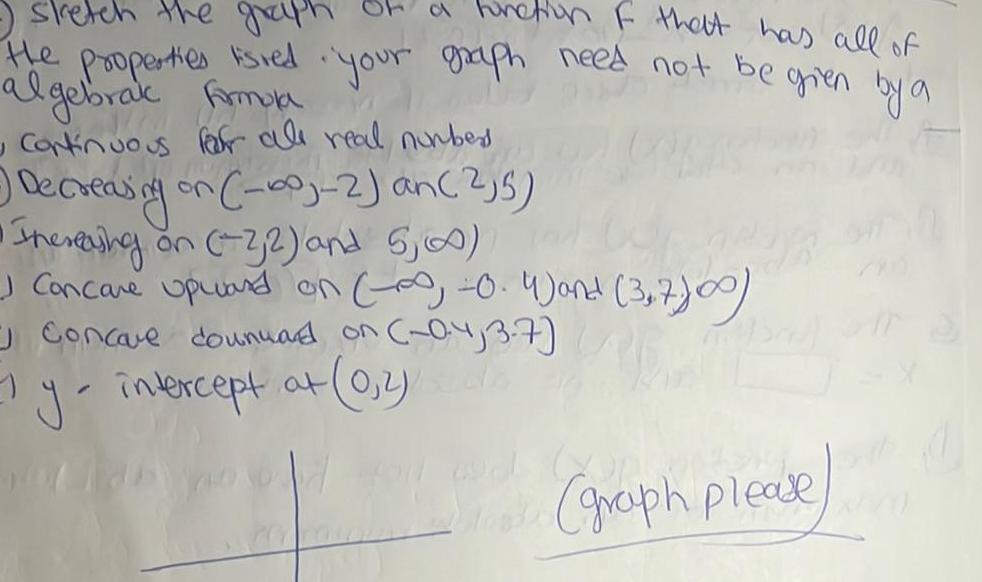 ) sketch the graph of a function f that has all of
the properties lisred . your graph need not be given by a
algebraic formola
, continuous for all real numbers
) Decreasing on (-∞,-2) an(2,5)
) Increasing on (-2,2) and 5,∞)
) Concave upward on (-∞, -0.4) and (3,7,∞)
) Concave downward on (-0.4,3.7)
) y - intercept at (0,2)
(graph please)